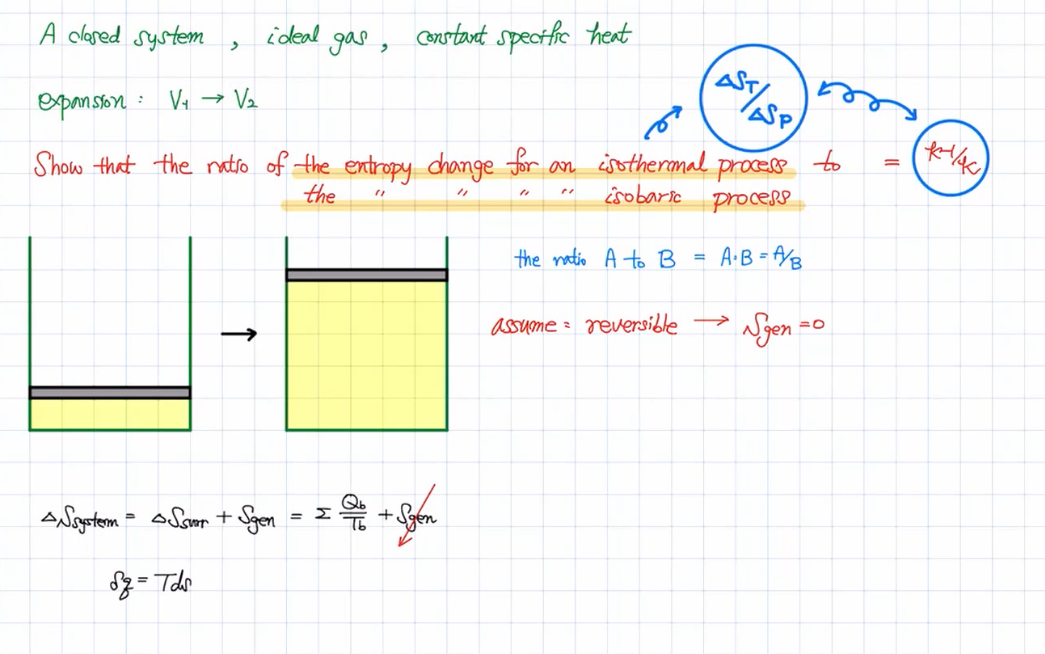 A closed system, ideal gas, constant specific heat
expansion: V₁ → V₂
ΔS_T/ΔS_P
Show that the ratio of the entropy change for an isothermal process to = k-1/k
the " " " " isobaric process
the ratio A to B = A:B = A/B
assume: reversible → Sgen = 0
ΔSsystem = ΔSsurr + Sgen = Σ Qb/Tb + Sgen
δq = Tds